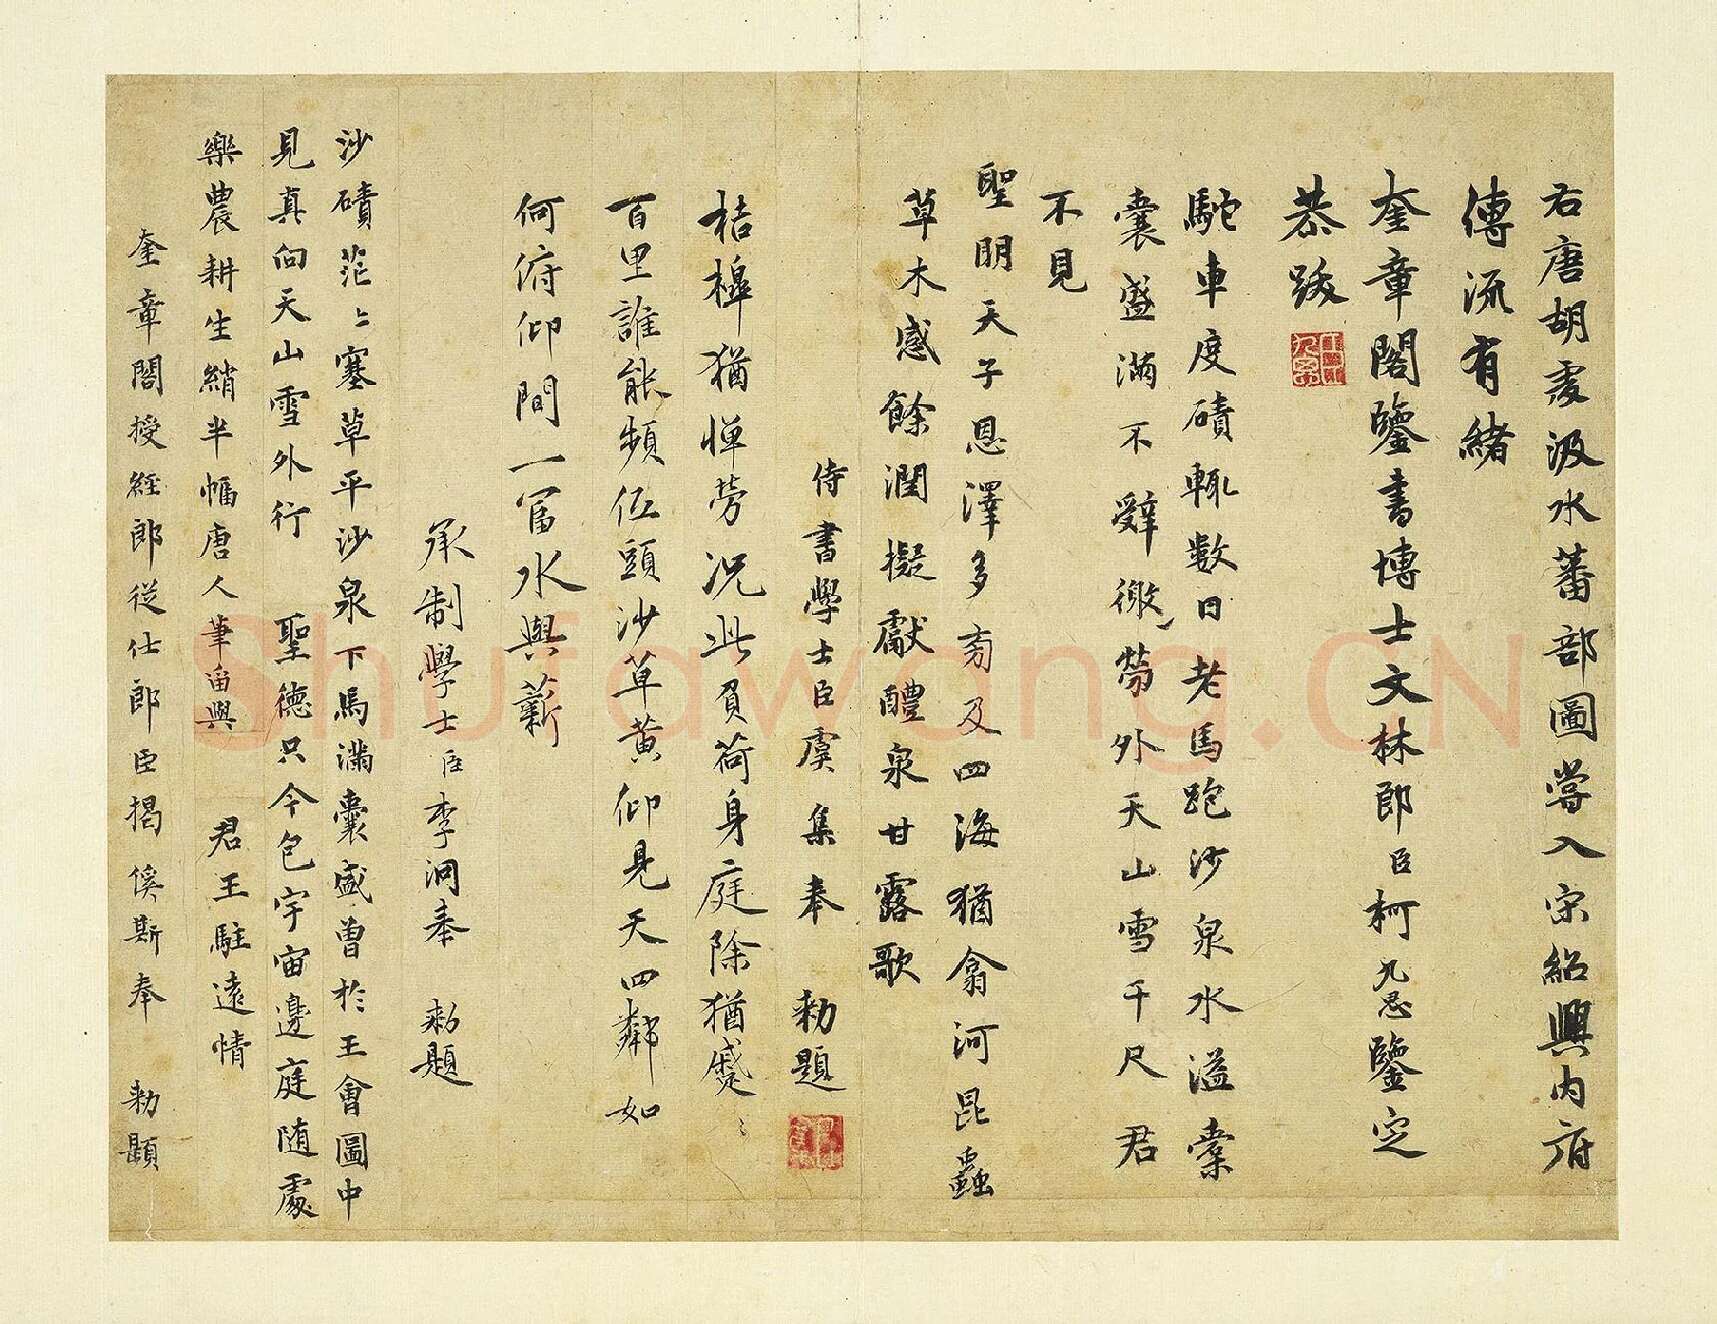 右唐胡虔汲水蕃部圖嘗入宋紹興內府
傳流有緒
奎章閣鑒書博士文林郎臣柯九思鑒定
恭跋
駝車度磧輒數日老馬跑沙泉水溢橐
囊盛滿不辭徼勞外天山雪千尺君
不見
聖明天子恩澤多旁及四海猶翕河昆蟲
草木感餘潤擬獻醴泉甘露歌
侍書學士臣虞集奉 勑題
桔槹猶憚勞況此負荷身庭除猶蹙〻
百里誰能頻低頭沙草黃仰見天四鄰如
何俯仰間一富水與薪
承制學士臣李泂奉 勑題
沙磧茫〻塞草平沙泉下馬滿囊盛曾於王會圖中
見真向天山雪外行 聖德只今包宇宙邊庭隨處
樂農耕生綃半幅唐人筆留與 君王駐遠情
奎章閣授經郎從仕郎臣揭傒斯奉 勑題
Shufawang.CN